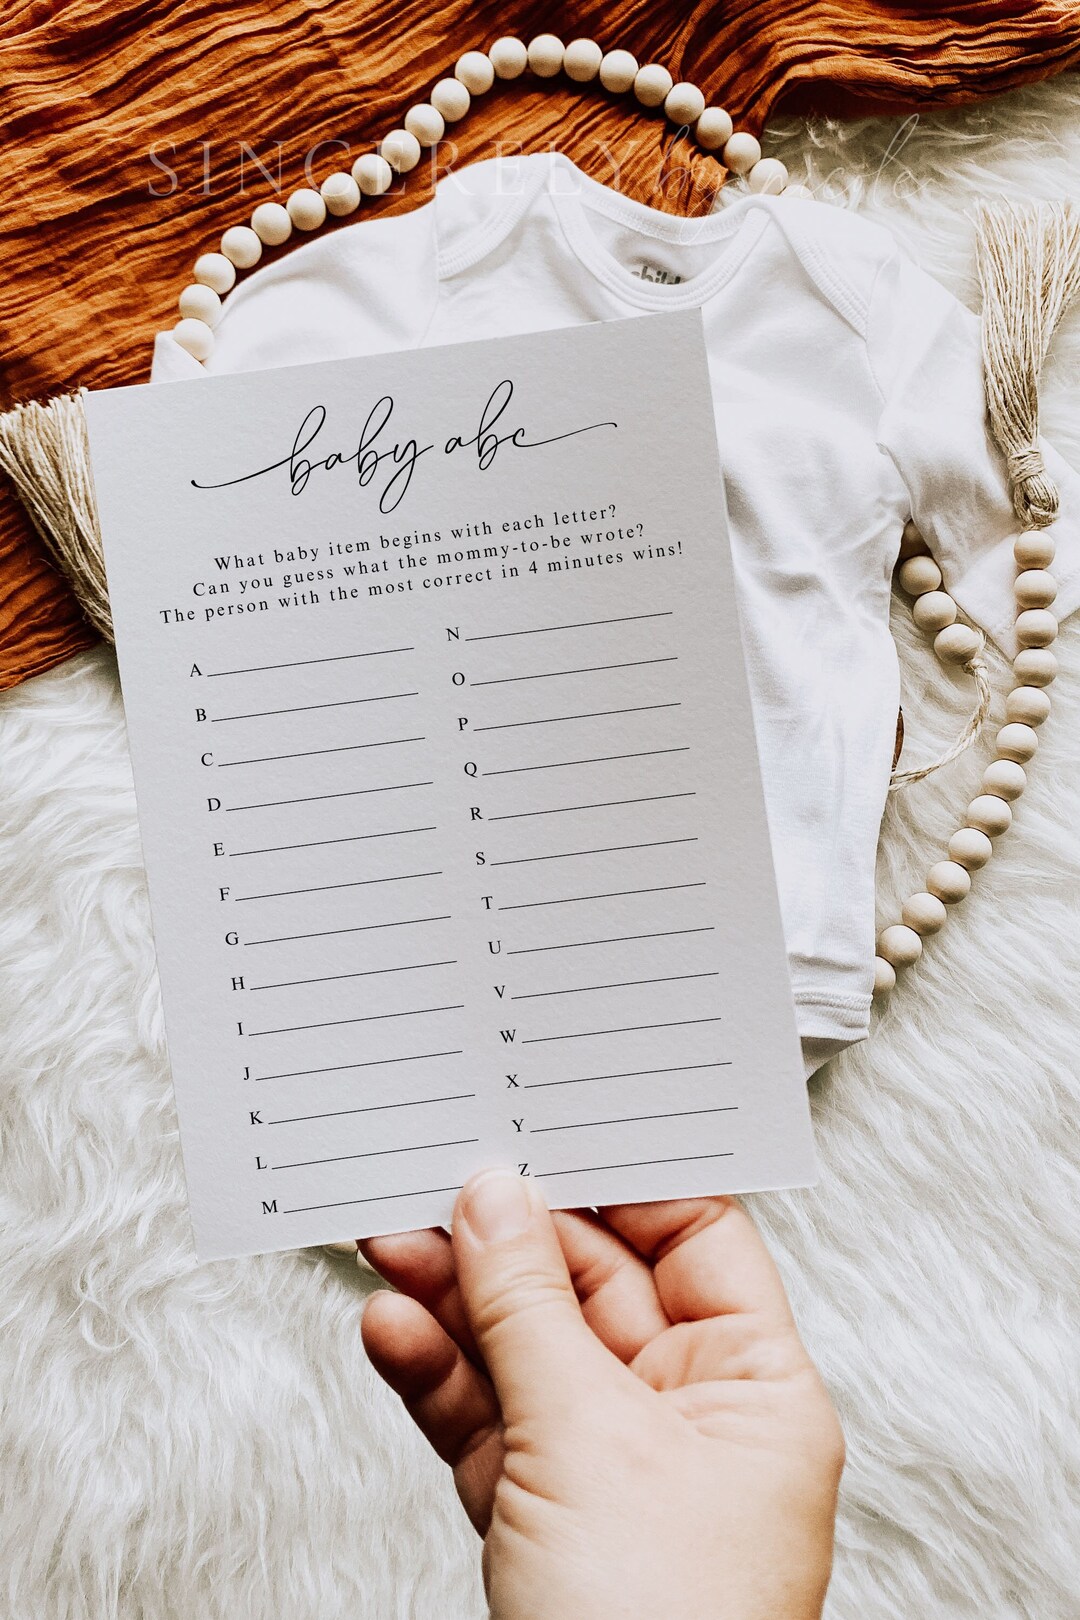 SINCERELY by nicole
child
baby abc
What baby item begins with each letter?
Can you guess what the mommy-to-be wrote?
The person with the most correct in 4 minutes wins!
A
B
C
D
E
F
G
H
I
J
K
L
M
N
O
P
Q
R
S
T
U
V
W
X
Y
Z